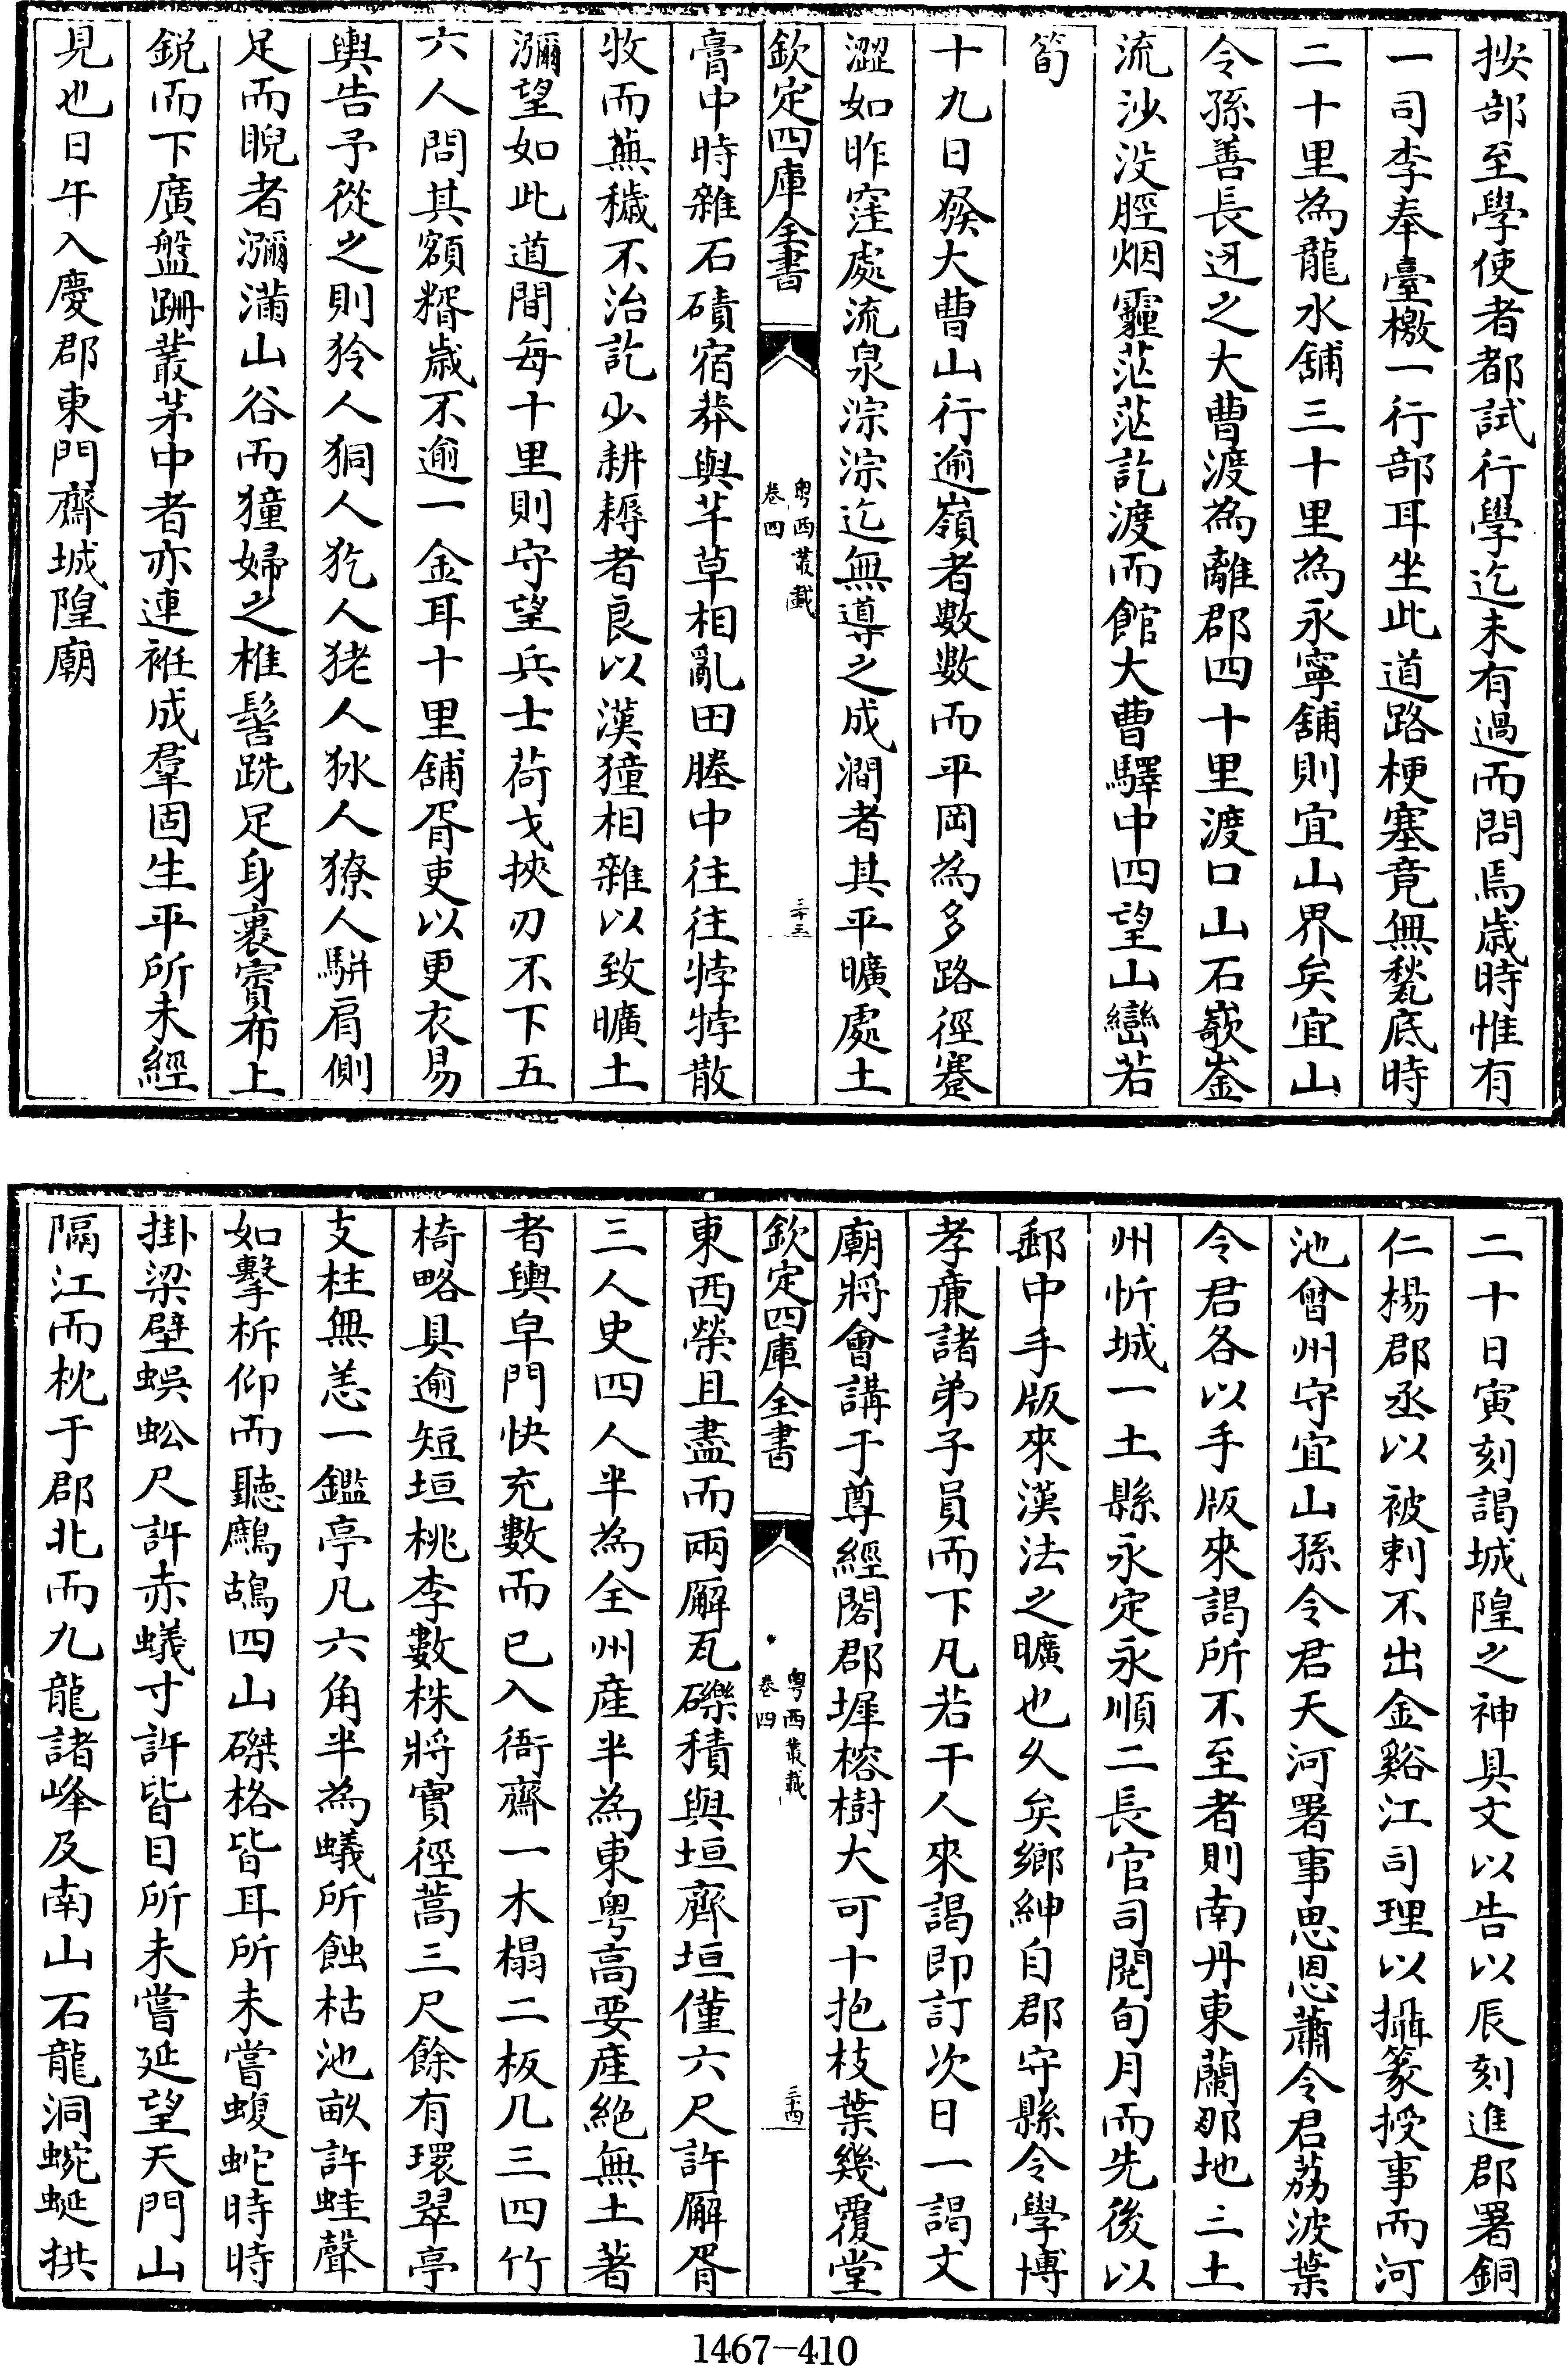 按部至學使者都試行學迄未有過而問焉歳時惟有
一司李奉臺檄一行部耳坐此道路梗塞竟無甃底時
二十里為龍水舖三十里為永寧舖則宜山界矣宜山
令孫善長迓之大曹渡為離郡四十里渡口山石嶔崟
流沙没脛烟霾茫茫訖渡而館大曹驛中四望山巒若
筍
十九日發大曹山行逾嶺者數數而平岡為多路徑蹇
澀如昨窪處流泉淙淙迄無導之成澗者其平曠處土
欽定四庫全書
粵西叢載
卷四
三十三
膏中時雜石磧宿莽與芊草相亂田塍中往往㹀㹀散
牧而蕪穢不治訖少耕耨者良以漢獞相雜以致曠土
瀰望如此道間每十里則守望兵士荷戈挾刃不下五
六人問其額糈歳不逾一金耳十里舖胥吏以更衣易
輿告予從之則狑人狪人犵人狫人㹫人獠人駢肩側
足而睨者瀰滿山谷而獞婦之椎髻跣足身裹賨布上
銳而下廣盤跚叢茅中者亦連袵成羣固生平所未經
見也日午入慶郡東門齋城隍廟
二十日寅刻謁城隍之神具文以告以辰刻進郡署銅
仁楊郡丞以被剌不出金谿江司理以攝篆授事而河
池曾州守宜山孫令君天河署事思恩蕭令君荔波葉
令君各以手版來謁所不至者則南丹東蘭那地三土
州忻城一土縣永定永順二長官司閱旬月而先後以
郵中手版來漢法之曠也久矣鄉紳自郡守縣令學博
孝廉諸弟子員而下凡若干人來謁即訂次日一謁文
廟將會講于尊經閣郡墀榕樹大可十抱枝葉幾覆堂
欽定四庫全書
粵西叢載
卷四
三十四
東西榮且盡而兩廨瓦礫積與垣齊垣僅六尺許廨胥
三人史四人半為全州産半為東粵高要産絶無土著
者輿皁門快充數而已入衙齋一木榻二板几三四竹
椅略具逾短垣桃李數株將實徑蒿三尺餘有環翠亭
支柱無恙一鑑亭凡六角半為蟻所蝕枯池畝許蛙聲
如擊柝仰而聽鷓鴣四山磔格皆耳所未嘗蝮蛇時時
掛梁壁蜈蚣尺許赤蟻寸許皆目所未嘗延望天門山
隔江而枕于郡北而九龍諸峰及南山石龍洞蜿蜒拱
1467-410